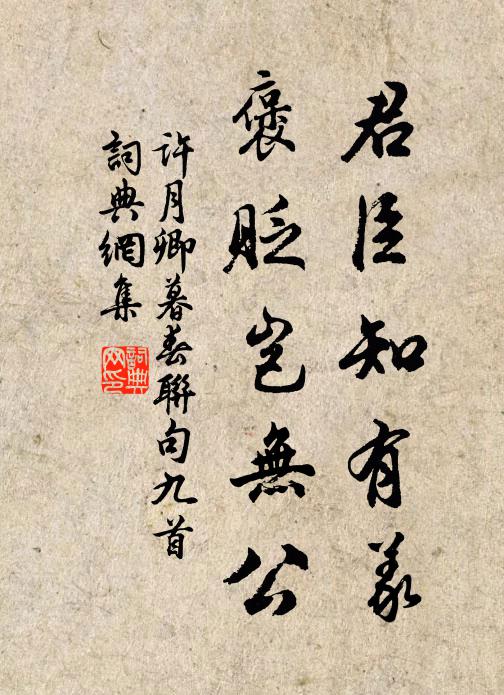 君臣知有義
褒貶豈無公
許月卿暮春聯句九首
詞典網集
詞典
网印